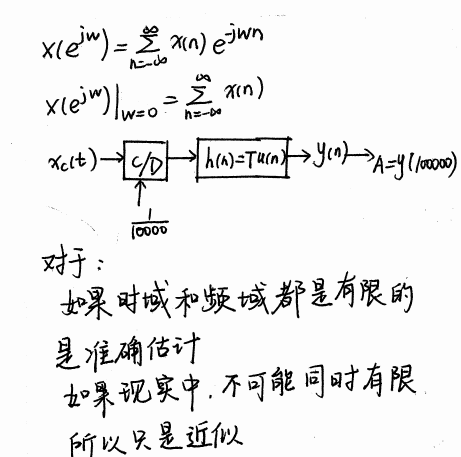 x(e^{jw}) = \sum_{n=-\infty}^{\infty} x(n) e^{-jwn}
x(e^{jw})|_{w=0} = \sum_{n=-\infty}^{\infty} x(n)
x_c(t) → C/D → h(n)=Tu(n) → y(n) → A=y(100000)
1/10000
对于:
如果时域和频域都是有限的
是准确估计
如果现实中.不可能同时有限
所以只是近似